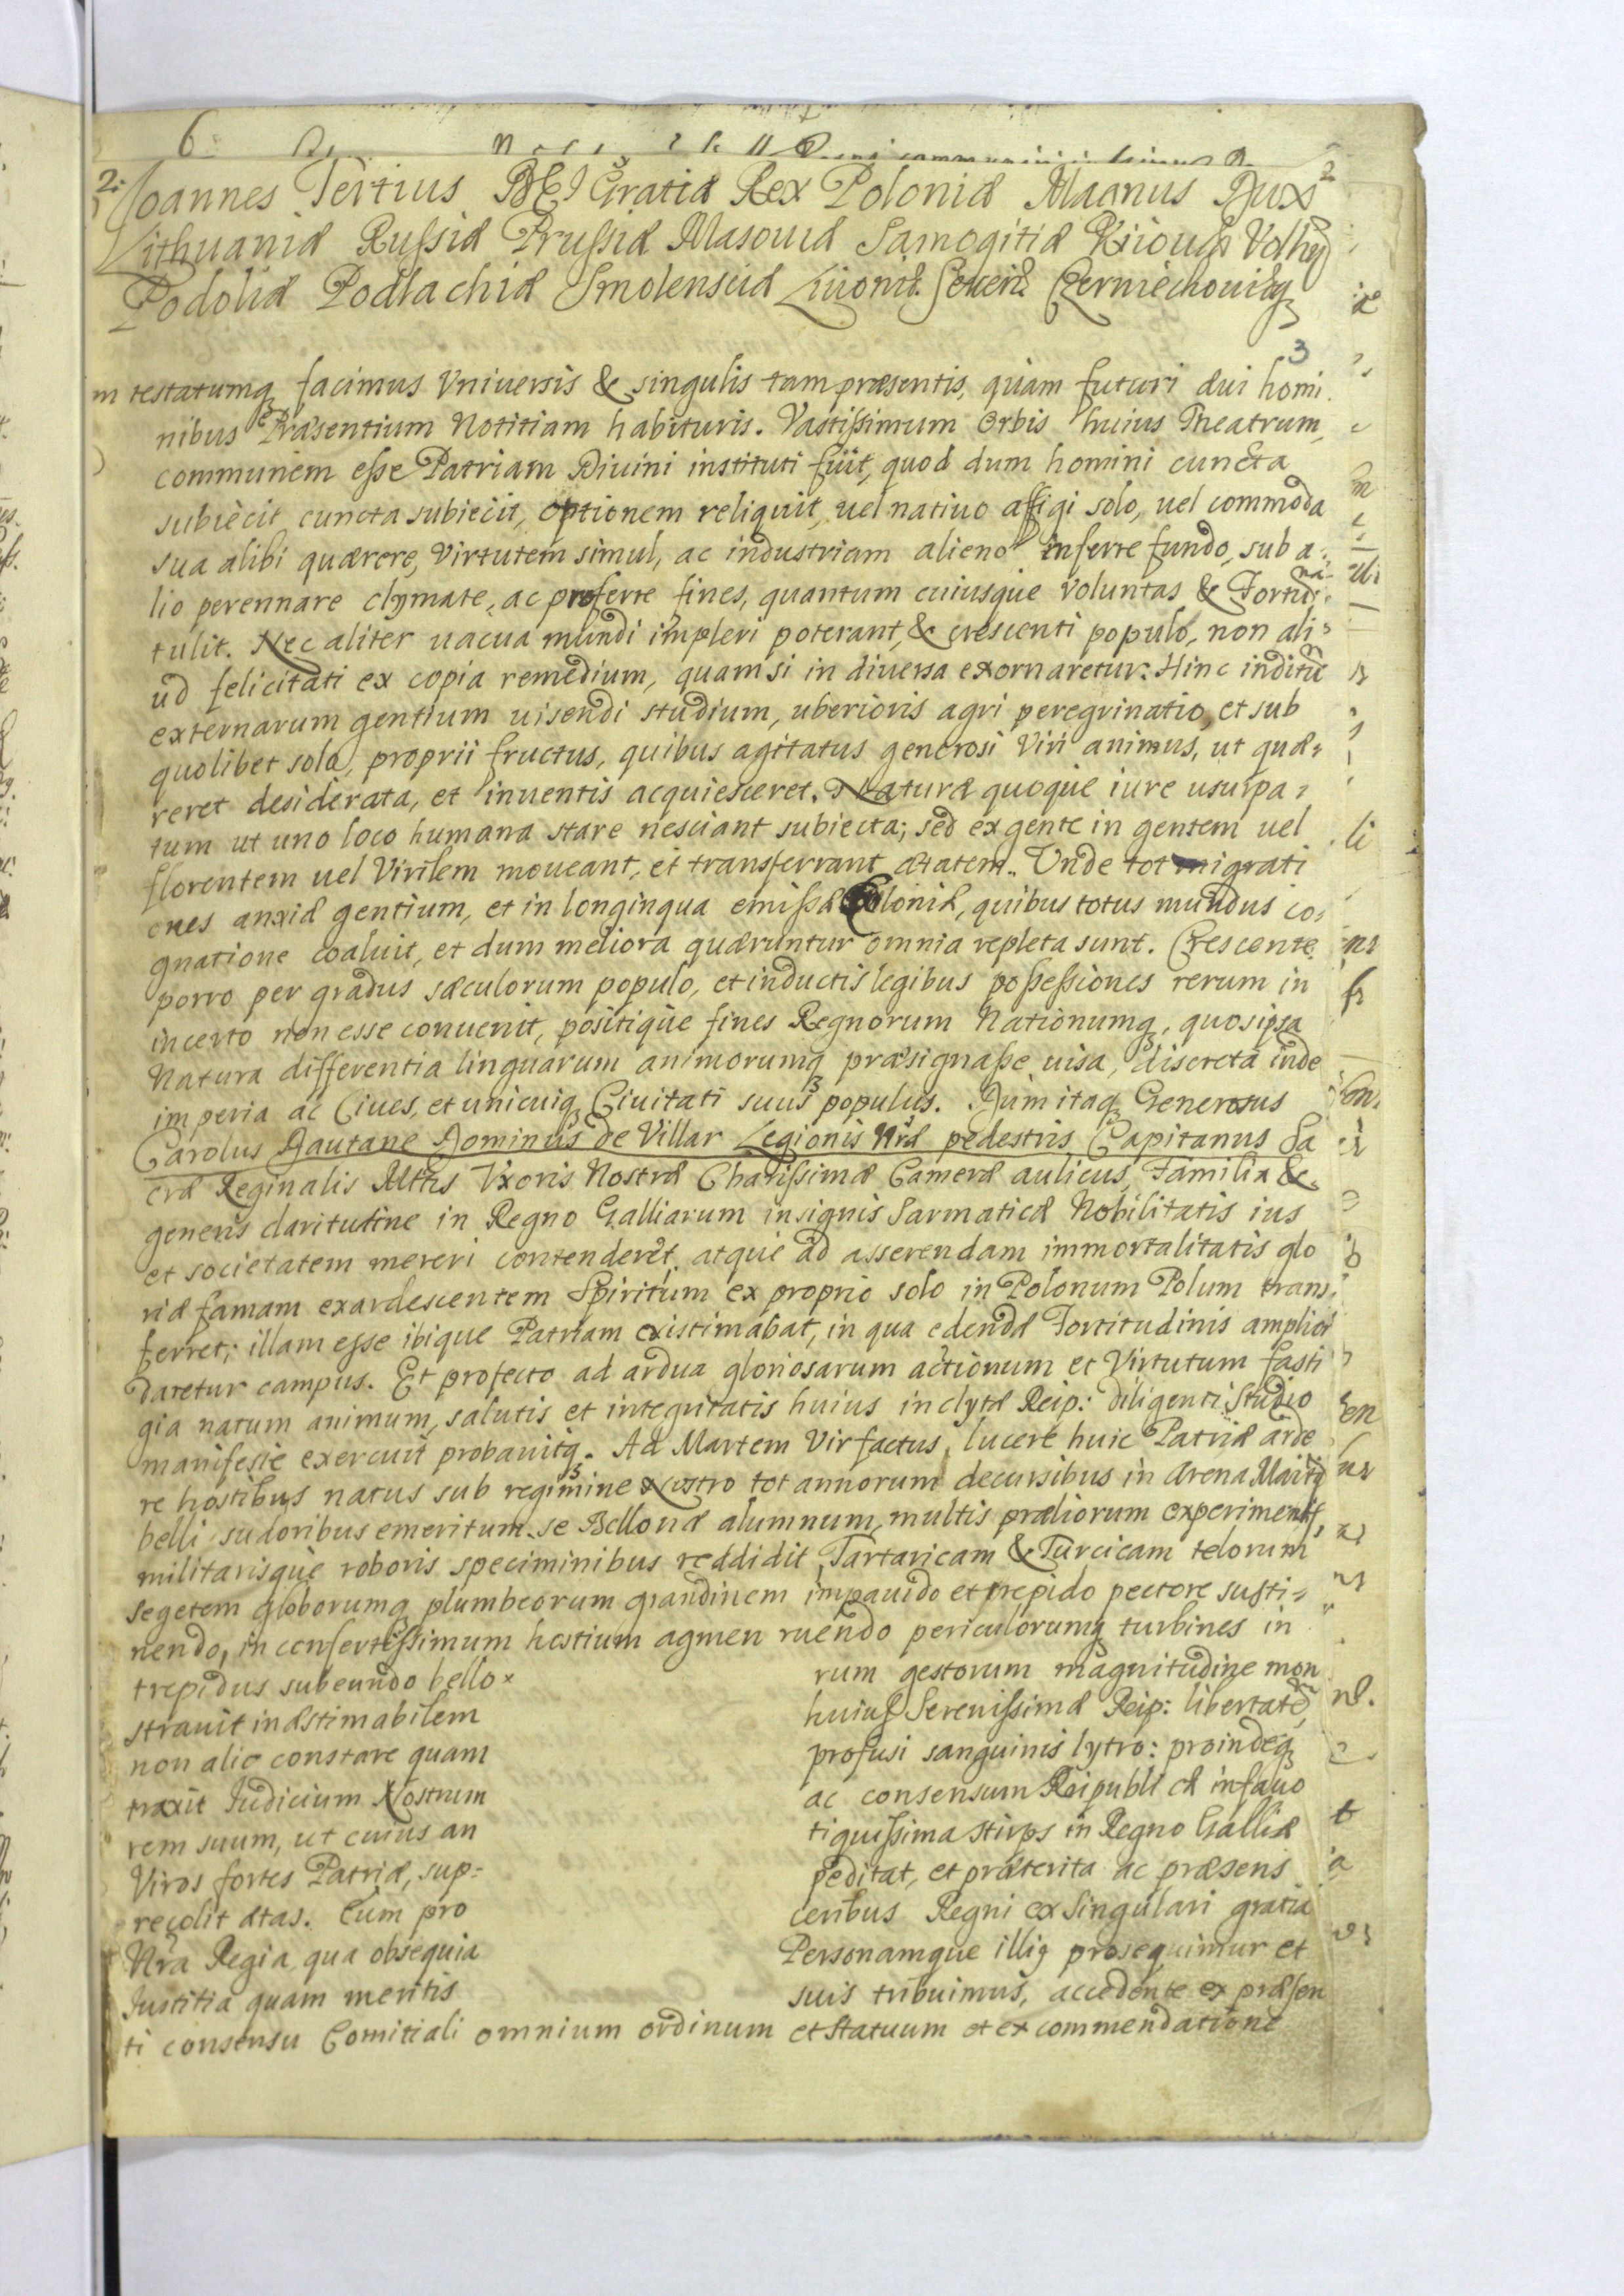 6
2. Joannes Tertius DEI Gratia Rex Poloniæ Magnus Dux 2
Lithuaniæ Russiæ Prussiæ Masouiæ Samogitiæ Kiiouiæ Volhy
Podoliæ Podlachiæ Smolensciæ Liuoniæ Seueriæ Czerniechouiæq
3
m testatumq facimus Vniuersis & singulis tam præsentis, quam futuri æui homi
nibus Præsentium Notitiam habituris. Vastissimum Orbis huius Theatrum,
communem esse Patriam Diuini instituti fuit, quod dum homini cuncta
subiecit cuncta subiecit, optionem reliquit, uel natiuo affigi solo, uel commoda
sua alibi quærere, Virtutem simul, ac industriam alieno inferre fundo, sub a-
lio perennare clymate, ac proferre fines, quantum cuiusque Voluntas & Fortuna
tulit. Nec aliter uacua mundi impleri poterant, & crescenti populo, non ali-
ud felicitati ex copia remedium, quam si in diuersa exornaretur: Hinc inditu
externarum gentium uisendi studium, uberioris agri peregrinatio, et sub
quolibet solo, proprii fructus, quibus agitatus generosi Viri animus, ut quæ-
reret desiderata, et inuentis acquiesceret. Naturæ quoque iure usurpa-
tum ut uno loco humana stare nesciant subiecta; sed ex gente in gentem uel
florentem uel Virilem moueant, et transferrant ætatem. Unde tot migrati
ones anxiæ gentium, et in longinqua emissæ Coloniæ, quibus totus mundus co-
gnatione coaluit, et dum meliora quæruntur omnia repleta sunt. Crescente
porro per gradus sæculorum populo, et inductis legibus possessiones rerum in
incerto non esse conuenit, positique fines Regnorum Nationumq, quos ipsa
Natura differentia linguarum animorumq præsignasse uisa, discreta inde
imperia ac Ciues, et unicuiq Ciuitati suus populus. Dum itaq Generosus
Carolus Dautane Dominus de Villar Legionis Nræ pedestris Capitanus Sa
cræ Reginalis Mttis Vxoris Nostræ Charissimæ Cameræ aulicus, Familia &
generis claritudine in Regno Galliarum insignis Sarmaticæ Nobilitatis ius
et societatem mereri contenderet, atque ad asserendam immortalitatis glo
riæ famam exardescentem Spiritum ex proprio solo in Polonum Polum trans-
ferret; illam esse ibique Patriam existimabat, in qua edendæ Fortitudinis amplior
daretur campus. Et profecto ad ardua gloriosarum actionum et Virtutum fasti
gia natum animum, salutis et integritatis huius inclytæ Reip: diligenti Studio
manifeste exercuit probauitq. Ad Martem Vir factus, lucere huic Patriæ arde
re hostibus natus sub regimine Nostro tot annorum decursibus in Arena Martis
belli sudoribus emeritum se Bellonæ alumnum, multis præliorum experimentis,
militarisque roboris speciminibus reddidit, Tartaricam & Turcicam telorum
segetem globorumq plumbeorum grandinem impauido et trepido pectore susti-
nendo, in confertissimum hostium agmen ruendo periculorumq turbines in
trepidus subeundo bello- rum gestorum magnitudine mon
strauit inæstimabilem huius Serenissimæ Reip: libertatem,
non alio constare quam profusi sanguinis lytro: proindeq
traxit Iudicium Nostrum ac consensum Reipublicæ in fauo
rem suum, ut cuius an tiquissima stirps in Regno Galliæ
Viros fortes Patriæ, sup- peditat, et præterita ac præsens
recolit ætas. Cum pro ceribus Regni ex Singulari gratia
Nra Regia, qua obsequia Personamque illiq prosequimur et
Iustitia quam meritis suis tribuimus, accedente ex præsen
ti consensu Comitiali omnium ordinum et Statuum et ex commendatione